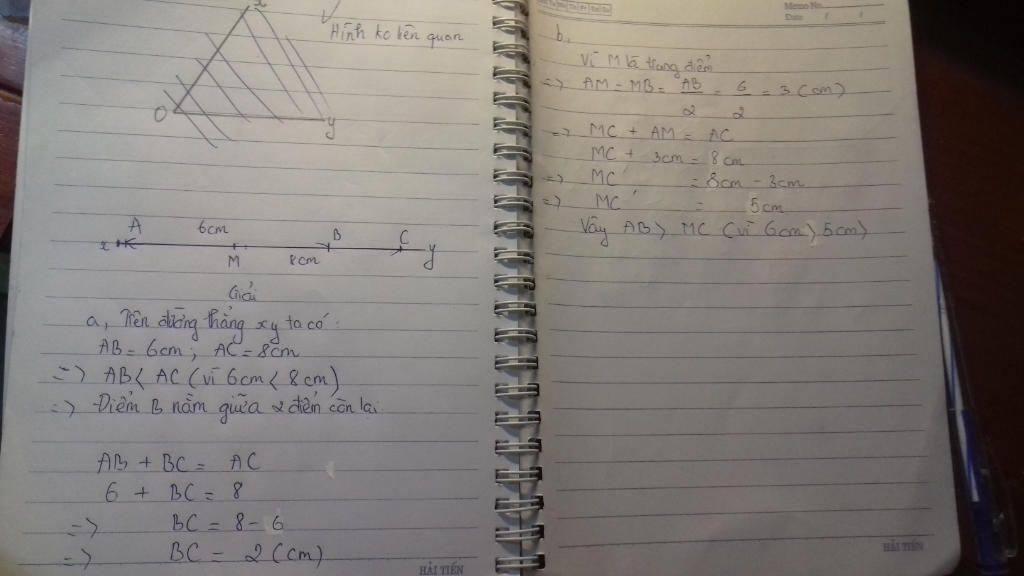 x
Hình ko liên quan
O
y
A 6cm B C
x M 8cm y
Giải
a, Trên đường thẳng xy ta có:
AB = 6cm; AC = 8cm
=> AB < AC (vì 6cm < 8cm)
=> Điểm B nằm giữa 2 điểm còn lại
AB + BC = AC
6 + BC = 8
=> BC = 8 - 6
=> BC = 2 (cm)
HẢI TIẾN
Memo No.
Date / /
b,
Vì M là trung điểm
=> AM = MB = AB/2 = 6/2 = 3 (cm)
=> MC + AM = AC
MC + 3cm = 8cm
=> MC = 8cm - 3cm
=> MC = 5cm
Vậy AB > MC (vì 6cm > 5cm)
HẢI TIẾN